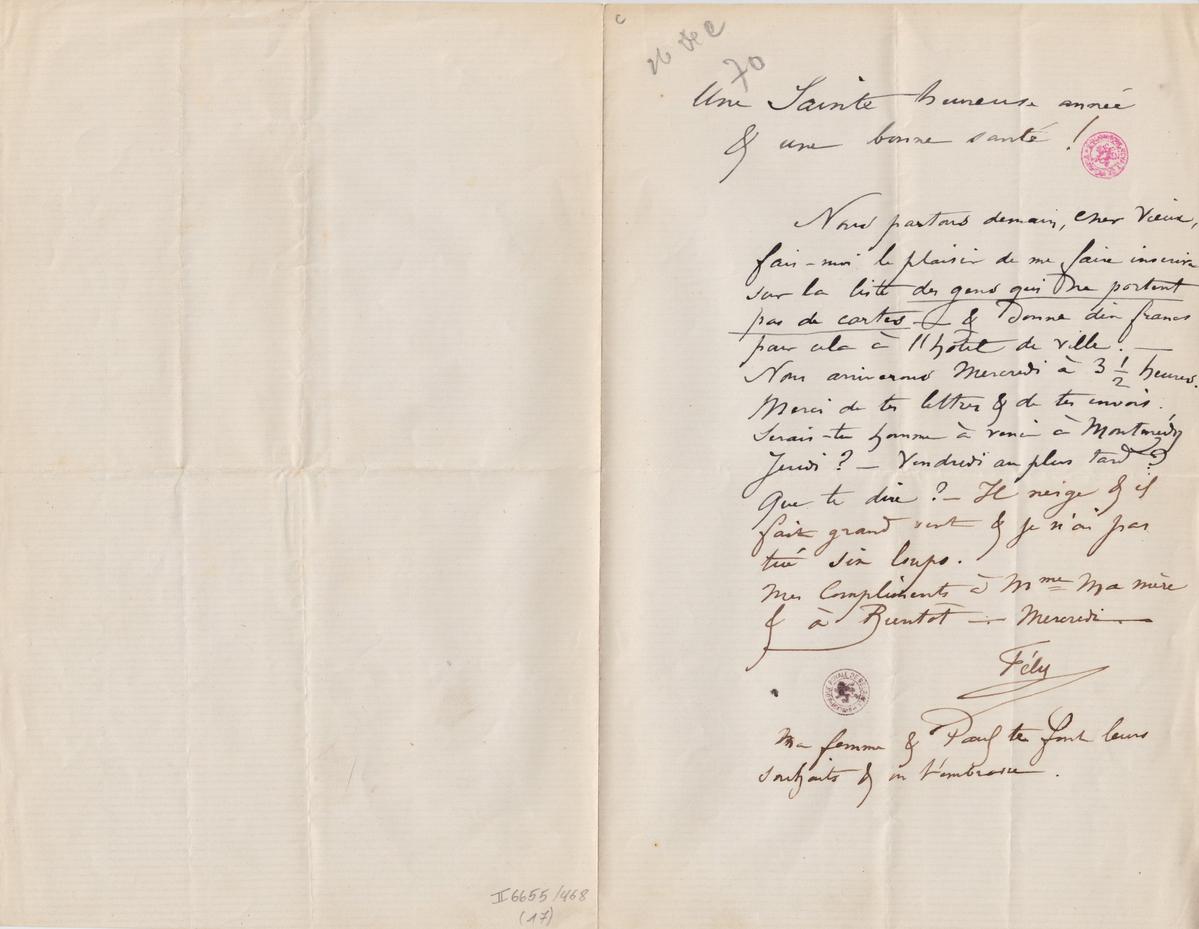 26 Dec
70
Une Sainte heureuse année
& une bonne santé !
Nous partons demain, cher Vieux,
fais-moi le plaisir de me faire inscrire
sur la liste des gens qui ne portent
pas de cartes — & donne dix francs
pour cela à l'hôtel de ville. —
Nous arriverons Mercredi à 3 1/2 heures.
Merci de tes lettres & de tes envois.
Serais-tu homme à venir à
Jeudi ? — Vendredi au plus tard ?
Que te dire ? — Il neige & il
fait grand vent & je n'ai pas
tué six loups.
Mes Compliments à Mme Ma mère
& à Bientôt — Mercredi —
Fély
Ma femme & Paul te font leurs
souhaits & on t'embrasse.
II 6655/468
(17)